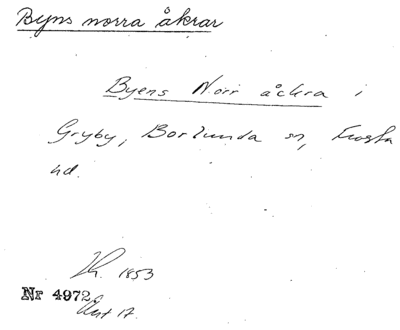 Byns norra åkrar
Byens Norr åckra i
Gryby, Borlunda sn, Frosta
hd.
1853
Nr 4972.
Akt 17.